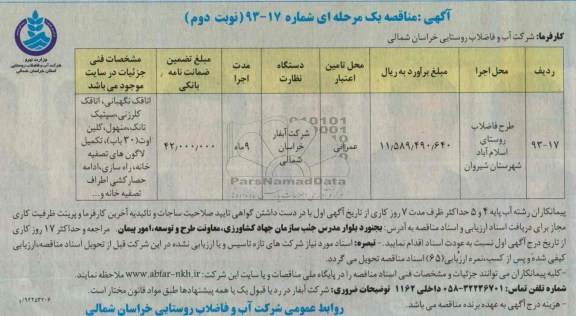 آگهی :مناقصه یک مرحله ای شماره ۱۷-۹۳(نوبت دوم)
کارفرما: شرکت آب و فاضلاب روستایی خراسان شمالی
وزارت نیرو
شرکت آب و فاضلاب روستایی
استان خراسان شمالی
ردیف
محل اجرا
مبلغ برآورد به ریال
محل تامین اعتبار
دستگاه نظارت
مدت اجرا
مبلغ تضمین ضمانت نامه بانکی
مشخصات فنی جزئیات در سایت موجود می باشد
۹۳-۱۷
طرح فاضلاب روستای اسلام آباد شهرستان شیروان
۱۱/۵۸۹/۴۹۰/۶۴۰
عمرانی
شرکت آبفار خراسان شمالی
۹ماه
۴۲/۰۰۰/۰۰۰
اتاقک نگهبانی، اتاقک کلرزنی،سپتیک تانک،منهول،کلین اوت(۳۰ باب)، تکمیل لاگون های تصفیه خانه، راه سازی،ادامه حصارکشی اطراف تصفیه خانه و...
ParsNamadData
پیمانکاران رشته آب پایه ۴ و ۵ حداکثر ظرف مدت ۷ روز کاری از تاریخ آگهی اول با در دست داشتن گواهی تایید صلاحیت ساجات و تائیدیه آخرین کارفرما و پرینت ظرفیت کاری
مجاز برای دریافت اسناد ارزیابی و اسناد مناقصه به آدرس: بجنورد بلوار مدرس جنب سازمان جهاد کشاورزی،معاونت طرح و توسعه،امور پیمان. مراجعه و حداکثر ۱۷ روز کاری
از تاریخ درج آگهی اول نسبت به عودت اسناد اقدام نمایید. - تبصره: اسناد مورد نیاز شرکت های تازه تاسیس و یا ارزیابی نشده در این شرکت قبل از تحویل اسناد مناقصه،ارزیابی
کیفی شده و پس از کسب،نمره ارزیابی(۶۵) اسناد مناقصه تحویل می گردد.
-کلیه پیمانکاران می توانند جزئیات و مشخصات فنی اسناد مناقصه را در پایگاه ملی مناقصات و یا سایت این شرکت: www.abfar-nkh.ir ملاحظه نمایند.
شماره تلفن تماس: ۳۲۲۲۶۷۰۱-۰۵۸ داخلی ۱۱۶۲ توضیحات ضروری: شرکت آبفار در رد یا قبول یک یا همه پیشنهادها طبق مواد قانون مختار است.
- هزینه درج آگهی به عهده برنده مناقصه می باشد.
روابط عمومی شرکت آب و فاضلاب روستایی خراسان شمالی